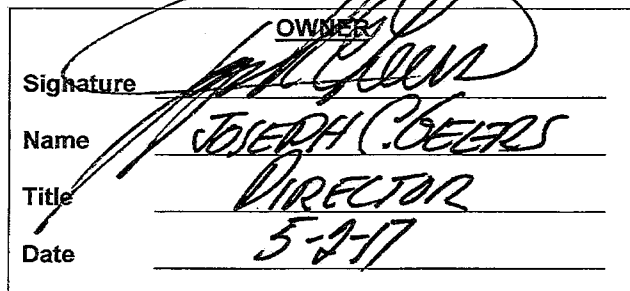 OWNER
Signature
Name JOSEPH C. GEERS
Title DIRECTOR
Date 5-2-17